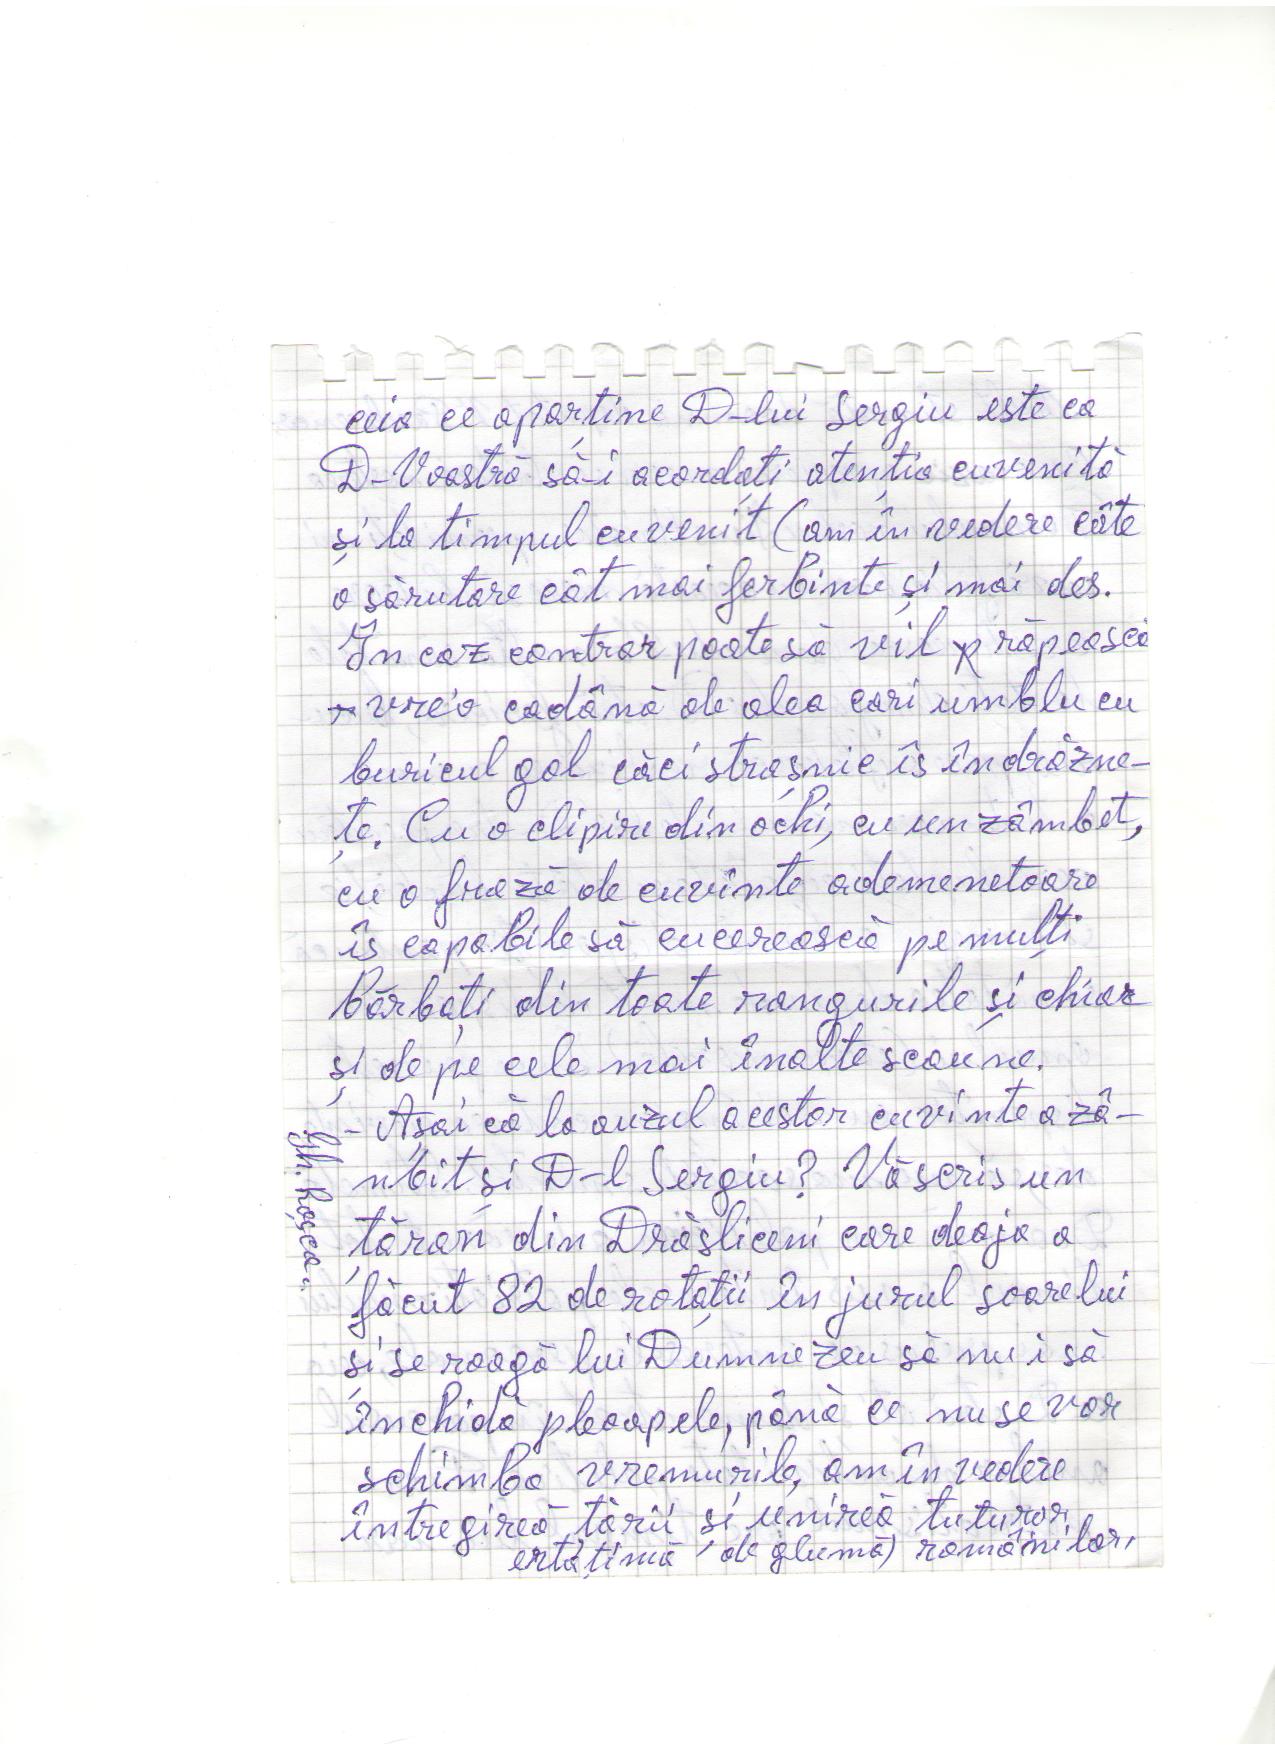 ceia ce aparține D-lui Sergiu este ca
D-Voastră să-i acordați atenția cuvenită
și la timpul cuvenit (am în vedere câte
o sărutare cât mai ferbinte și mai des.
În caz contrar poate să vi-l răpească
vre'o cadână de alea cari umblu cu
buricul gol căci strașnic îs îndrăzne-
țe. Cu o clipire din ochi, cu un zâmbet,
cu o frază de cuvinte ademenetoare
îs capabile să cucerească pe mulți
bărbați din toate rangurile și chiar
și de pe cele mai înalte scaune.
- Așai că la auzul acestor cuvinte a ză-
nbit și D-l Sergiu? Vă scris un
țăran din Drăsliceni care deaja a
făcut 82 de rotații în jurul soarelui
și se roagă lui Dumnezeu să nu i să
închidă pleoapele, până ce nu se vor
schimba vremurile, am în vedere
întregirea țării și unirea tuturor
românilor,
ertațimă de glumă)
Gh. Roșca.